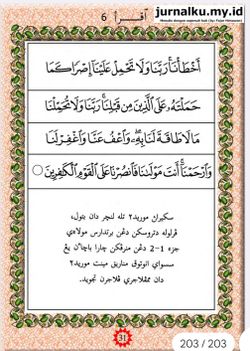 jurnalku.my.id
اقرأ 6
أَخْطَأْنَا رَبَّنَا وَلَا تَحْمِلْ عَلَيْنَا إِصْرًا كَمَا
حَمَلْتَهُ عَلَى الَّذِينَ مِن قَبْلِنَا رَبَّنَا وَلَا تُحَمِّلْنَا
مَا لَا طَاقَةَ لَنَا بِهِ وَاعْفُ عَنَّا وَاغْفِرْ لَنَا
وَارْحَمْنَا أَنتَ مَوْلَىٰنَا فَانصُرْنَا عَلَى الْقَوْمِ الْكَٰفِرِينَ
سكيران موريد٢ تله لنچر دان بتول،
ڤرلوله دتروسكن دڠن برتدارس مولاءي
جزء 1-2 دڠن
چارا باچاءن يڠ
سسواي انتوق مناريق مينت موريد٢
دان ممڤلاجري ڤلاجرن تجويد.
31
203 / 203